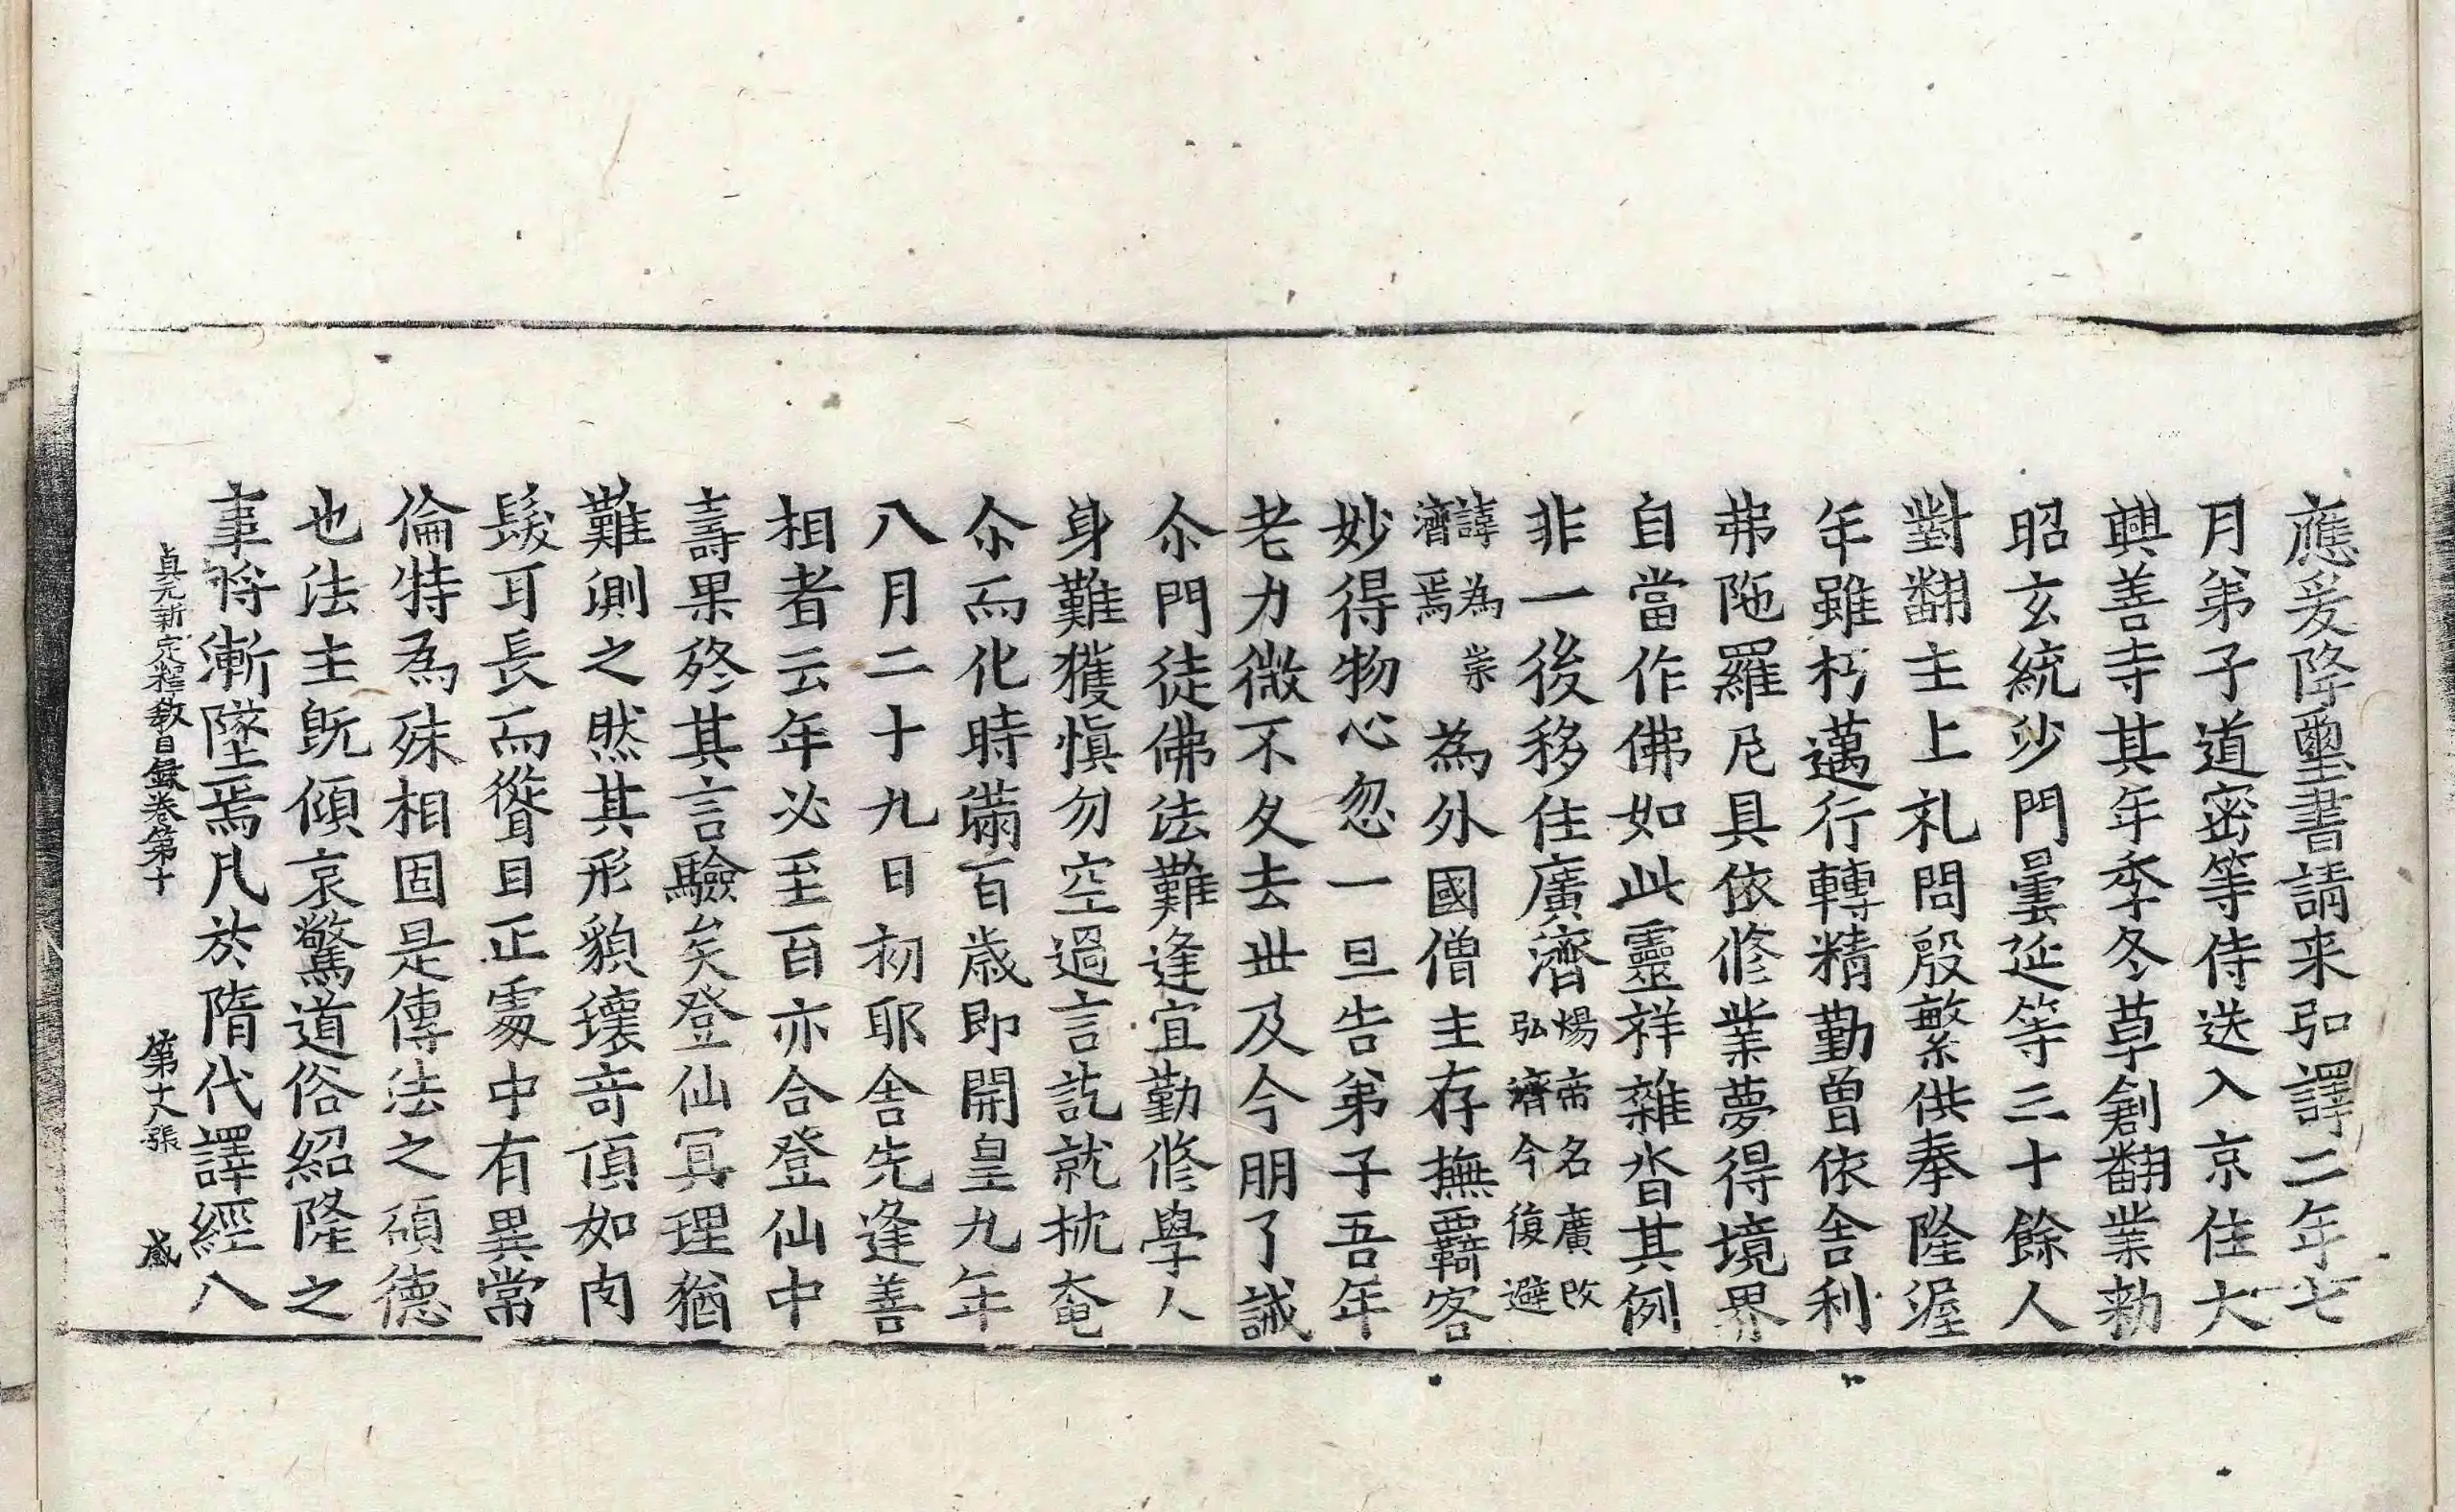 應爰降璽書請来弘譯二年七
月弟子道密等侍送入京住大
興善寺其年季冬草創翻業勑
昭玄統沙門曇延等三十餘人
對翻主上礼問殷繁供奉隆渥
年雖朽邁行轉精勤曽依舍利
弗陁羅尼具依修業夢得境界
自當作佛如此靈祥雜沓其例
非一後移住廣濟煬帝名廣改弘濟今復避
諱為崇濟焉為外國僧主存撫羈客
妙得物心忽一旦告弟子吾年
老力微不久去世及今明了誡
尒門徒佛法難逢宜勤修學人
身難獲慎勿空過言訖就枕奄
尒而化時滿百歲即開皇九年
八月二十九日初耶舍先逢善
相者云年必至百亦合登仙中
壽果終其言驗矣登仙冥理猶
難測之然其形貌瓌奇頂如肉
髻耳長而聳目正處中有異常
倫特為殊相固是傳法之碩德
也法主旣傾哀驚道俗紹隆之
事將漸墜焉凡於隋代譯經八
貞元新定釋教目錄卷第十 第十八張 感